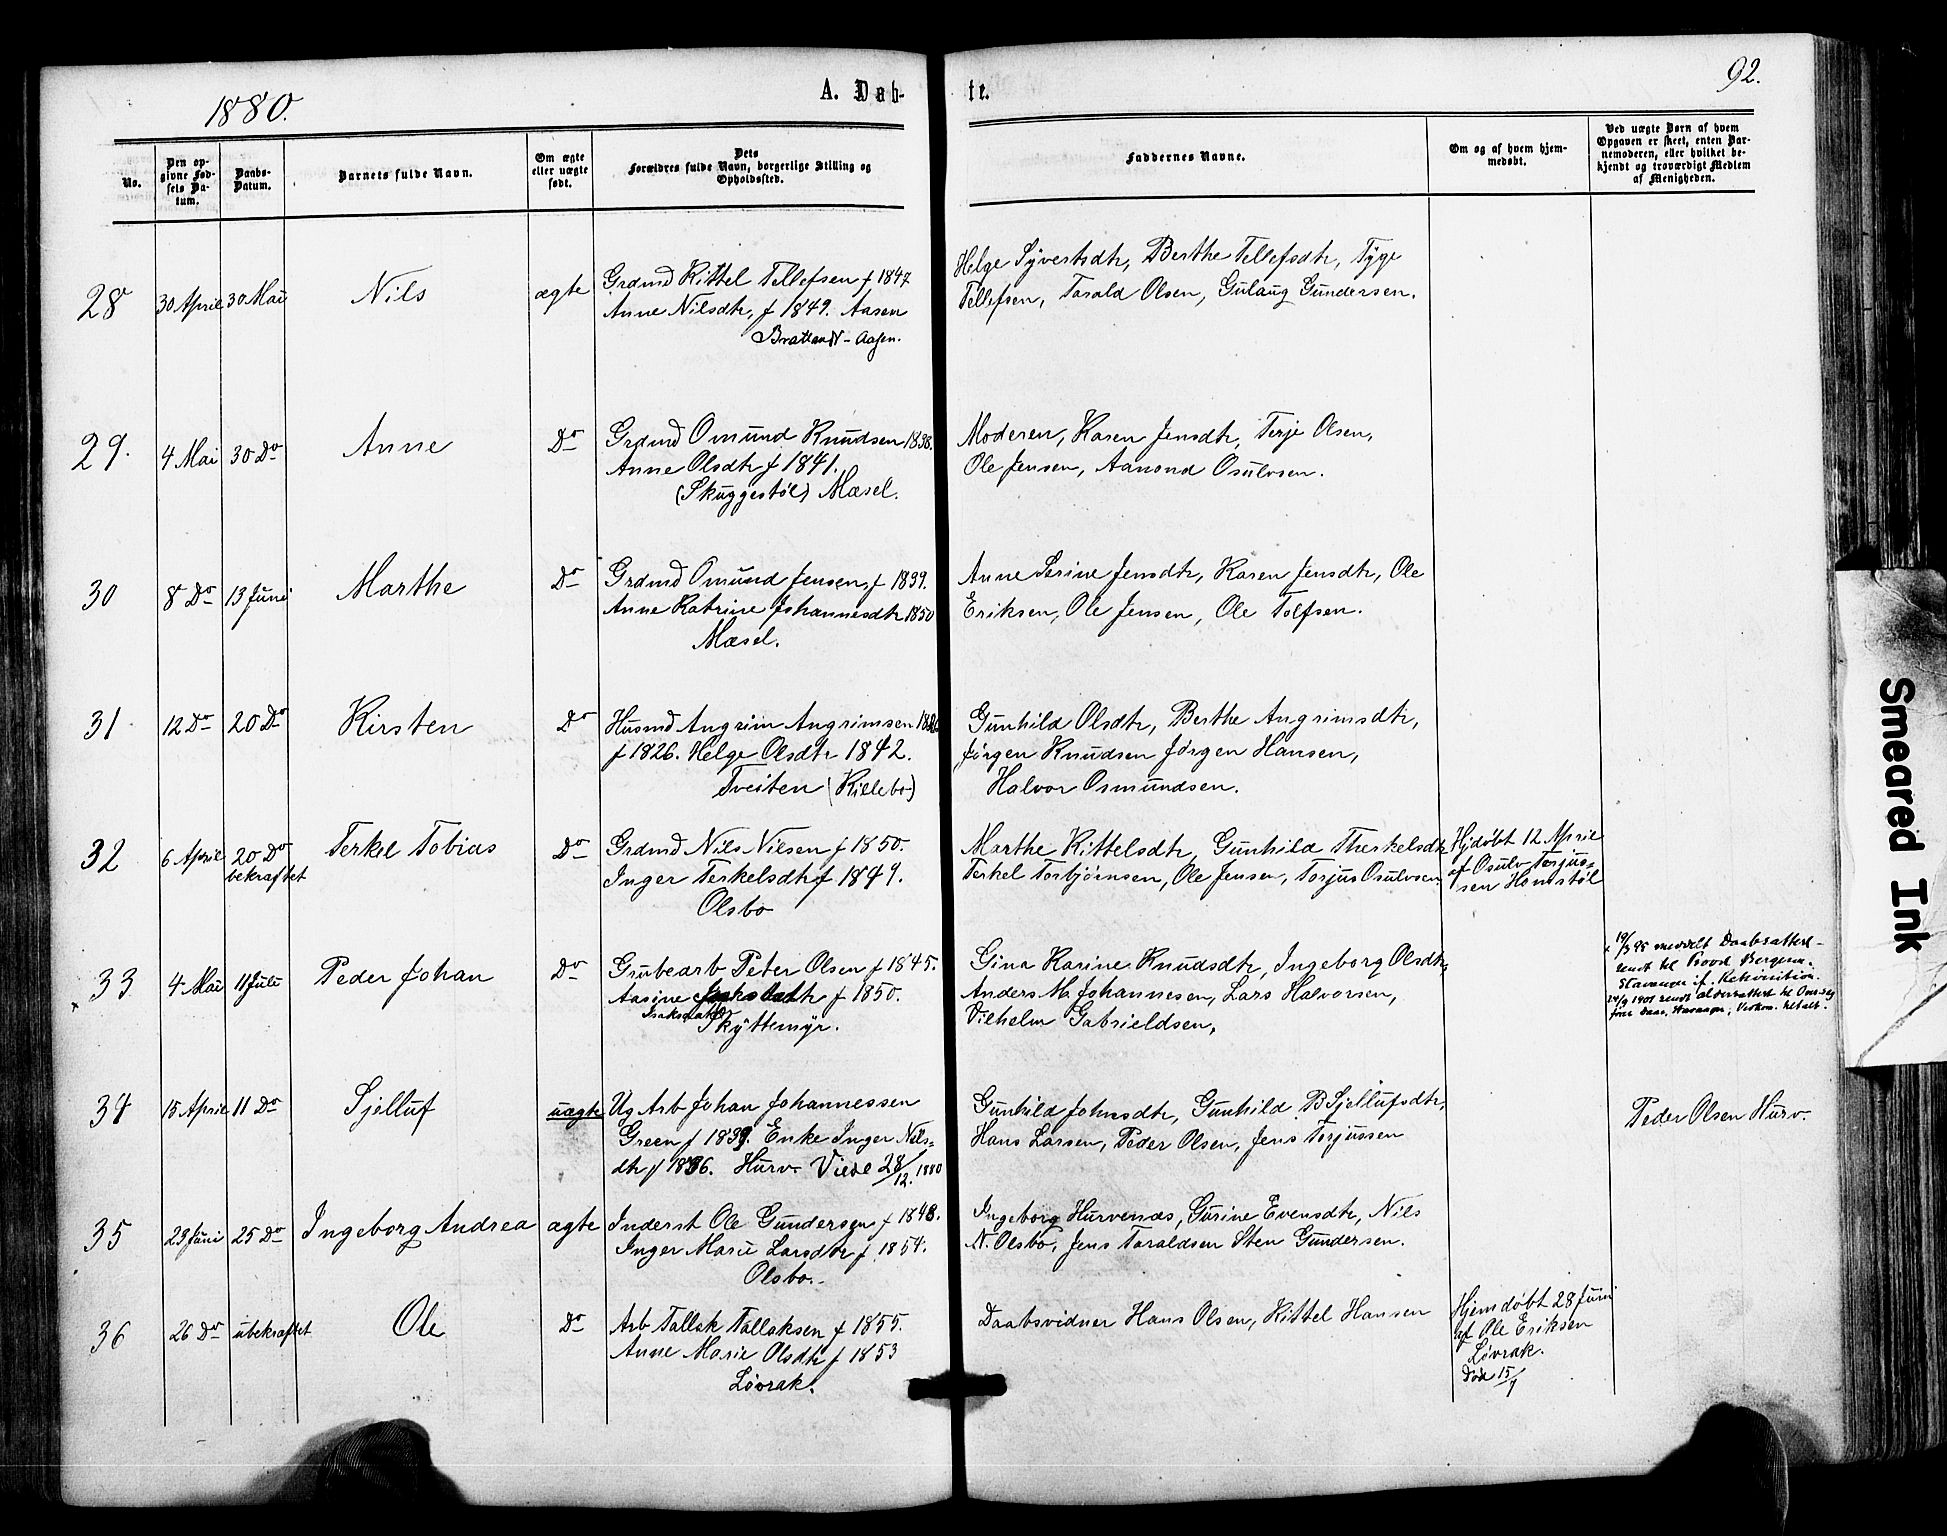 1880.
A. Døb-
te.
92.
No.
Den op-
givne Fød-
sels Da-
tum.
Daabs-
Datum.
Barnets fulde Navn.
Om ægte
eller uægte
født.
Dets
Forældres fulde Navn, borgerlige Stilling og
Opholdssted.
Faddernes Navne.
Om og af hvem hjem-
medøbt.
Ved uægte Børn af hvem
Opgaven er skeet, enten Bar-
nemoderen, eller hvilket be-
kjendt og troværdigt Medlem
af Menigheden.
28 30 April 30 Mai Nils ægte
Grdmd Kittel Tellefsen f 1847
Anne Nilsdtr, f 1849. Aasen
Bratland - Aasen.
Helge Syvertsdtr, Berthe Tellefsdtr, Tyge
Tellefsen, Torald Olsen, Gulaug Gundersen.
29. 4 Mai 30 Do Anne Do
Grdmd Omund Knudsen 1838.
Anne Olsdtr f 1841.
(Skuggestøl) Mæsel.
Moderen, Karen Jensdtr, Terje Olsen,
Ole Jensen, Aanond Osulvsen.
30 8 Do 13 Juni Marthe Do
Grdmd Omund Jensen, f 1839.
Anne Katrine Johannesdtr 1850
Mæsel.
Anne Serine Jensdtr, Karen Jensdtr, Ole
Eriksen, Ole Jensen, Ole Tolfsen.
31 12 Do 20 Do Kirsten Do
Husmd Angrim Angrimsen
f 1826. Helge Olsdtr 1842.
Tveiten (Killebo)
Gunhild Olsdtr, Berthe Angrimsdtr,
Jørgen Knudsen Jørgen Hansen,
Halvor Osmundsen.
32 6 April 20 Do
bekraftet
Terkel Tobias Do
Grdmd Nils Nilsen f 1850.
Inger Terkelsdtr f 1849.
Olsbo
Marthe Kittelsdtr Gunhild Therkelsdtr
Terkel Torbjørnsen, Ole Jensen, Torjus Osulvsen.
Hjdøbt 12 April
af Osulv Torjus-
sen Homstøl
33 4 Mai 11 Juli Peder Johan Do
Grubearb Peter Olsen f 1845.
Aasine f 1850.
Isaksdatter
Skyttemyr.
Gina Karine Knudsdtr, Ingeborg Olsdtr,
Anders M. Johannesen, Lars Halvorsen,
Vilhelm Gabrieldsen,
19/3 95 meddelt Daabsattest
sendt til Provd Bergesen
Stavanger if. Rekvisition.
24/9 1901 sendt aldersattest til
34 15 April 11 Do Sjelluf uægte
Ug Arb Johan Johannessen
Green f 1839. Enke Inger Nils-
dtr f 1836. Hurv Viede 28/12. 1880
Gunhild Johnsdtr, Gunhild B Sjellufsdtr,
Hans Larsen, Peder Olsen, Jens Torjussen
Peder Olsen Hurv.
35 23 Juni 25 Do Ingeborg Andrea ægte
Inderst Ole Gundersen f 1848.
Inger Marie Larsdtr f 1854.
Olsbo.
Ingeborg Hurvenæs, Gurine Evensdtr, Nils
N. Olsbo, Jens Taraldsen Sten Gundersen.
36 26 Do ubekraftet Ole Do
Arb Tallak Tallaksen f 1855.
Anne Marie Olsdtr f 1853
Løvrak.
Daabsvidner Hans Olsen, Kittel Hansen
Hjemdøbt 28 Juni
af Ole Eriksen
Løvrak.
Død 15/7
Smeared Ink